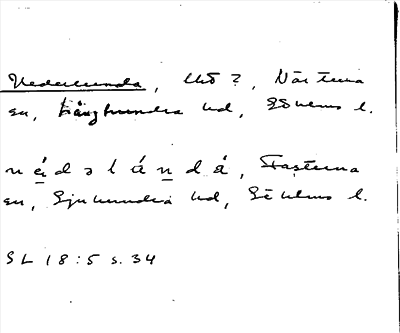 Nederlunda, Ub ?, Närtuna
sn, Långhundra hd, Sthlms l.
nédəlándá, Fasterna
sn, Sjuhundra hd, Sthlms l.
SL 18:5 s. 34